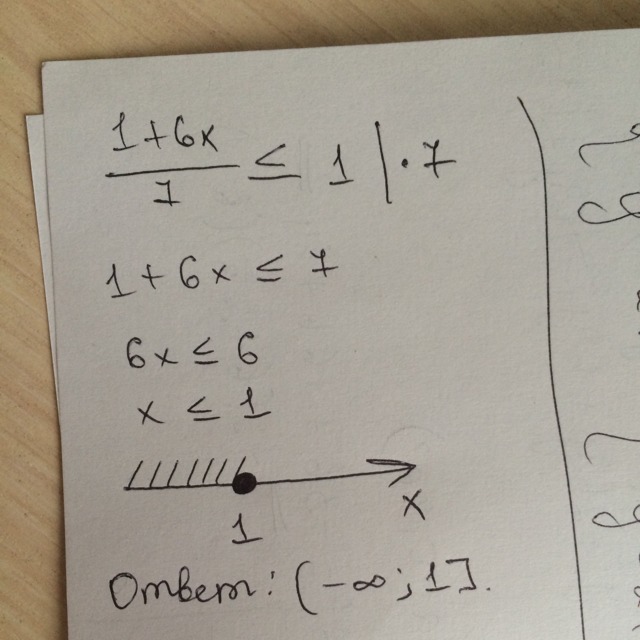 1+6x
7
≤ 1 | · 7
1 + 6x ≤ 7
6x ≤ 6
x ≤ 1
1
x
Ответ: (-∞; 1].